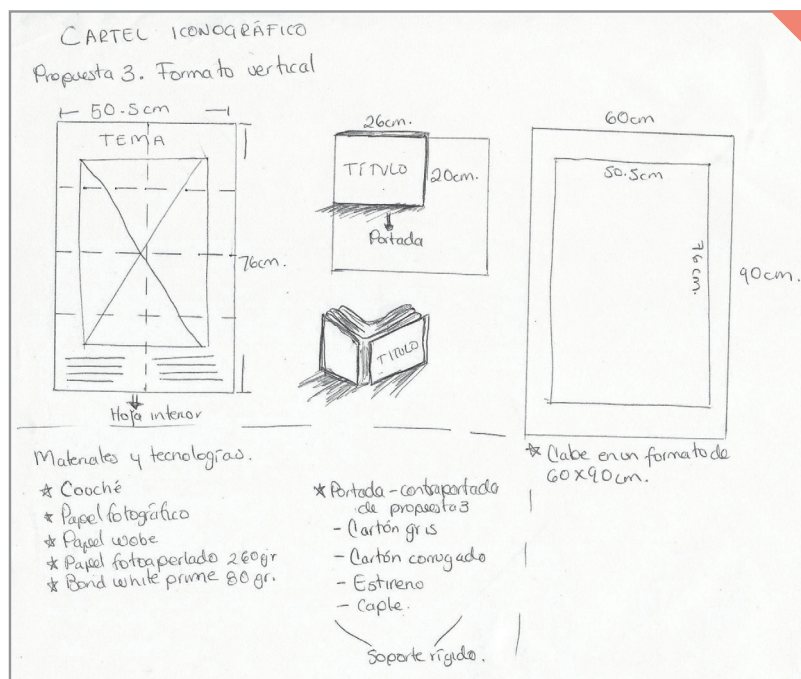 CARTEL ICONOGRÁFICO
Propuesta 3. Formato vertical
50.5cm
TEMA
76cm.
Hoja interior
26cm.
TÍTULO
20cm.
Portada
TITULO
60cm
50.5cm
76cm.
90cm.
* Cabe en un formato de
60X90cm.
Materiales y tecnologías.
* Couché
* Papel fotográfico
* Papel wobe
* Papel fotoaperlado 260gr
* Bond white prime 80 gr.
* Portada-contraportada
de propuesta 3
- Cartón gris
- Cartón corrugado
- Estireno
- Caple.
Soporte rígido.